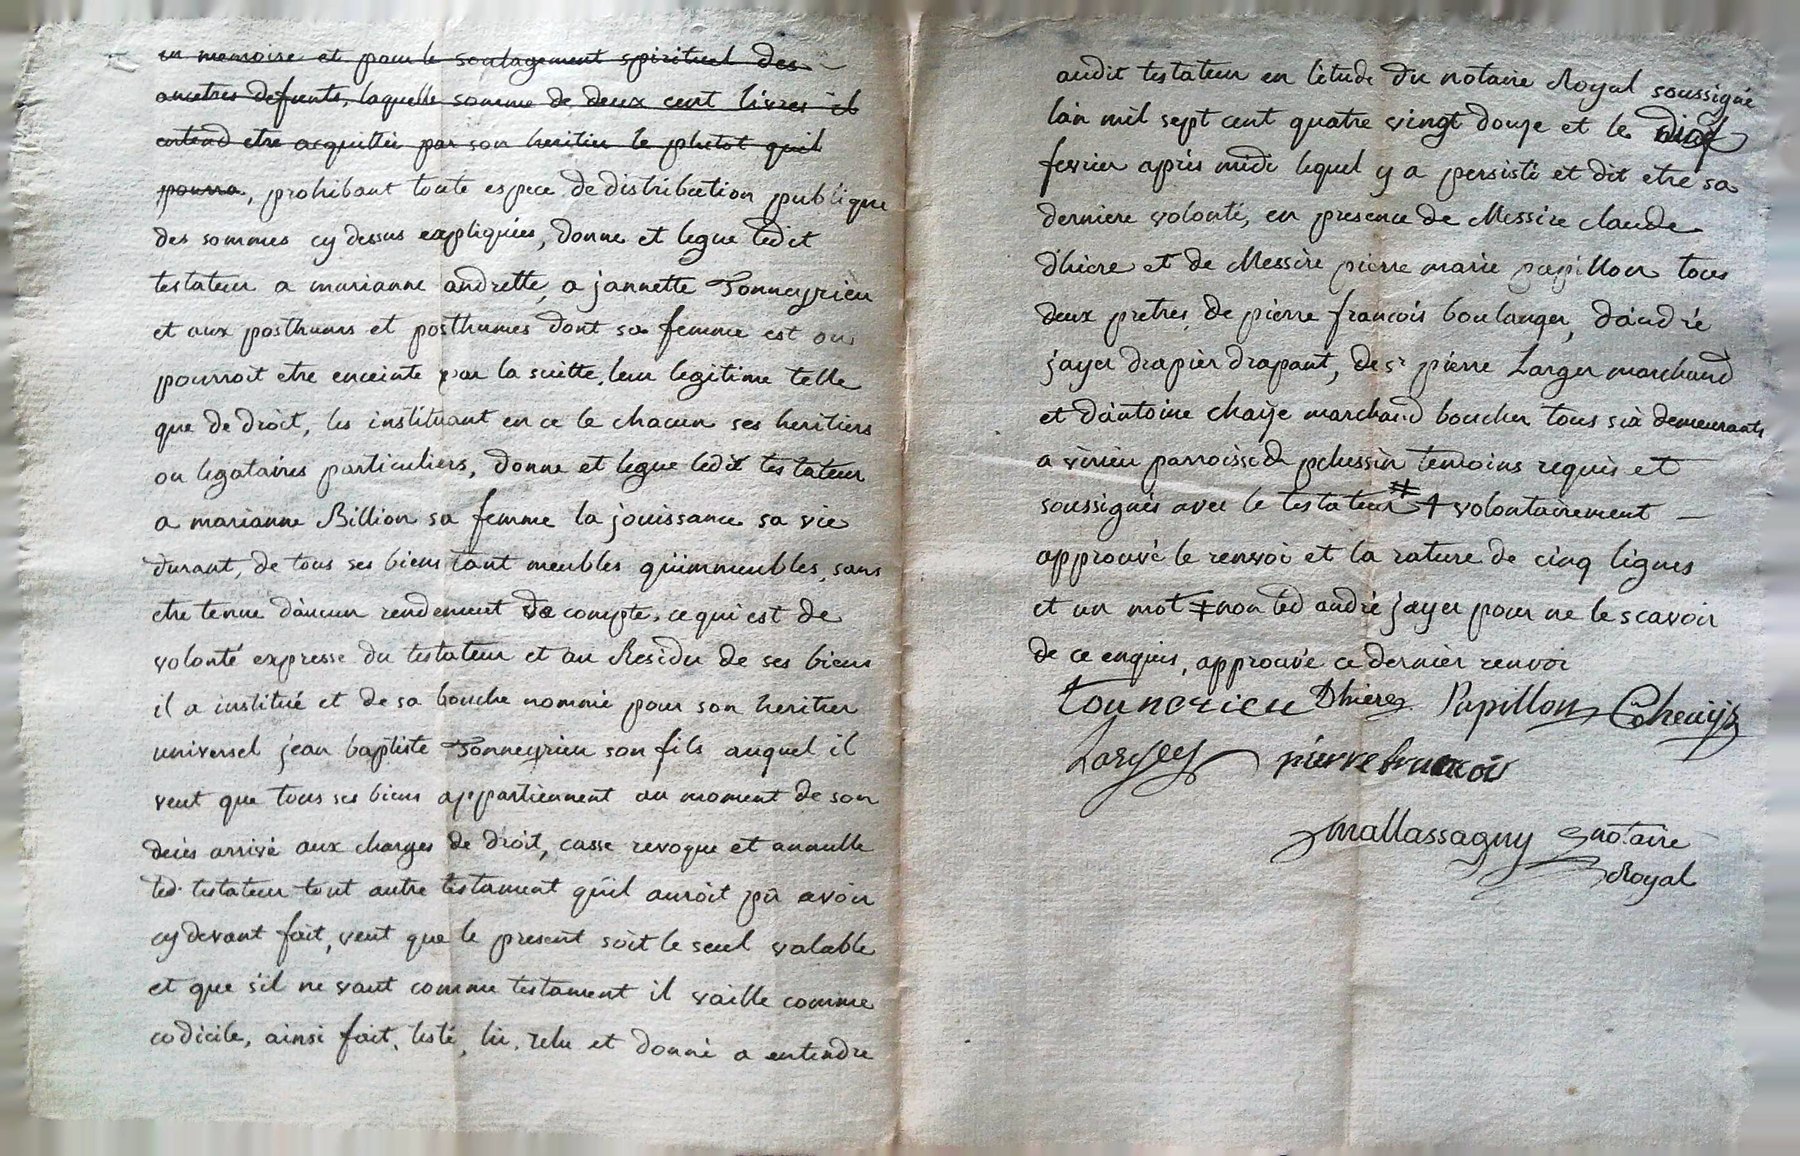 en memoire et pour le soulagement spirituel des
ancetres defunts, laquelle somme de deux cent livres il
entend etre acquittée par son heritier le plutot quil
pourra, prohibant toute espece de distribution publique
des sommes cy dessus expliquées, donne et legue ledit
testateur a marianne andrette, a jannette Tonneyrieu
et aux posthumes et posthumes dont sa femme est ou
pourroit etre enceinte par la suitte, leur legitime telle
que de droit, les instituant en ce le chacun ses heritiers
ou legataires particuliers, donne et legue ledit testateur
a marianne Billion sa femme la jouissance sa vie
durant, de tous ses biens tant meubles qu'immeubles, sans
etre tenue d'aucun rendement de compte, ce qui est de
volonté expresse du testateur et au Residu de ses biens
il a institué et de sa bouche nommé pour son heritier
universel jean baptiste Tonneyrieu son fils auquel il
veut que tous ses biens appartiennent au moment de son
decès arrivé aux charges de droit, casse revoque et annulle
led. testateur tout autre testament qu'il auroit pû avoir
cy devant fait, veut que le present soit le seul valable
et que s'il ne vaut comme testament il vaille comme
codicile, ainsi fait, testé, lu, relu et donné a entendre
audit testateur en l'etude du notaire Royal soussigné
l'an mil sept cent quatre vingt douze et le
fevrier après midi lequel y a persisté et dit etre sa
derniere volonté, en presence de Messire claude
d'hiere et de Messire pierre marie papillon tous
deux pretres, de pierre francois boulanger, d'andré
jayer drapier drapant, de sr pierre Larger marchand
et d'antoine chaije marchand boucher tous six demeurants
a virieu parroisse de pelussin temoins requis et
soussignés avec le testateur # volontairement
approuvé le renvoi et la rature de cinq lignes
et un mot ‡ non led andré jayer pour ne le scavoir
de ce enquis, approuvé ce dernier renvoi
tounerieu Dhiere Papillon
Larger pierre francois
Mallassagny notaire
Royal